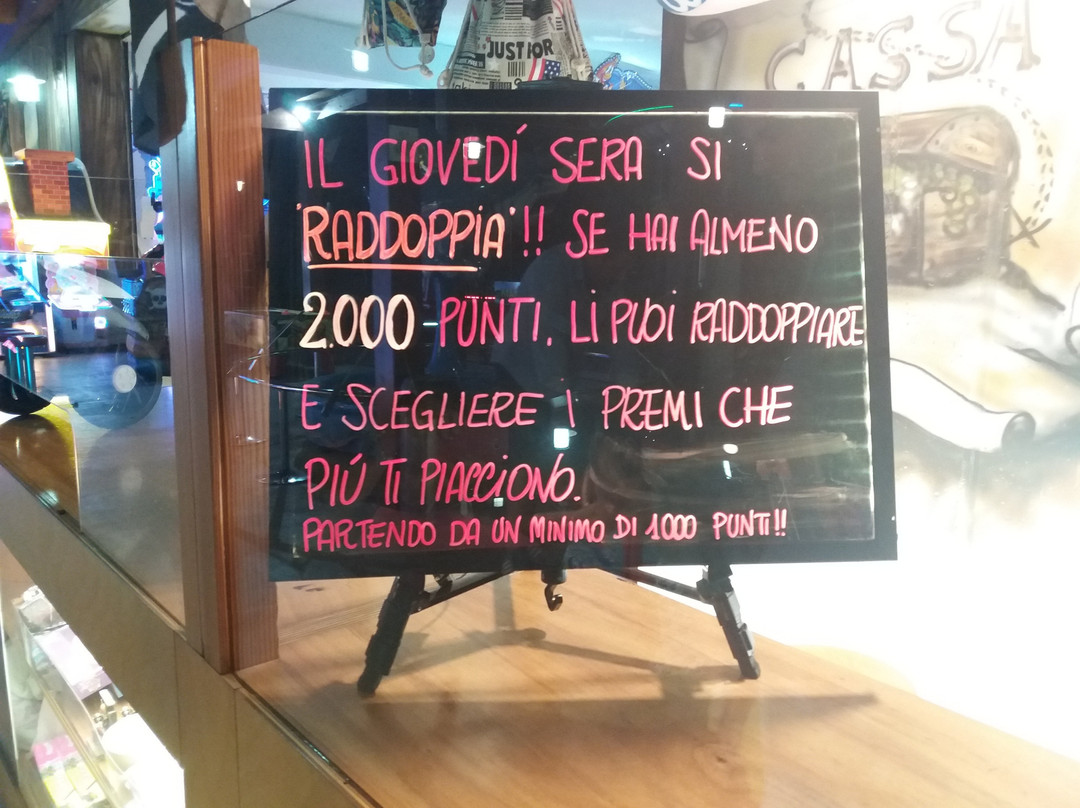 JUST FOR
CASSA
IL GIOVEDÍ SERA SI
"RADDOPPIA"!! SE HAI ALMENO
2.000 PUNTI. LI PUOI RADDOPPIARE
E SCEGLIERE I PREMI CHE
PIÚ TI PIACCIONO.
PARTENDO DA UN MINIMO DI 1000 PUNTI!!